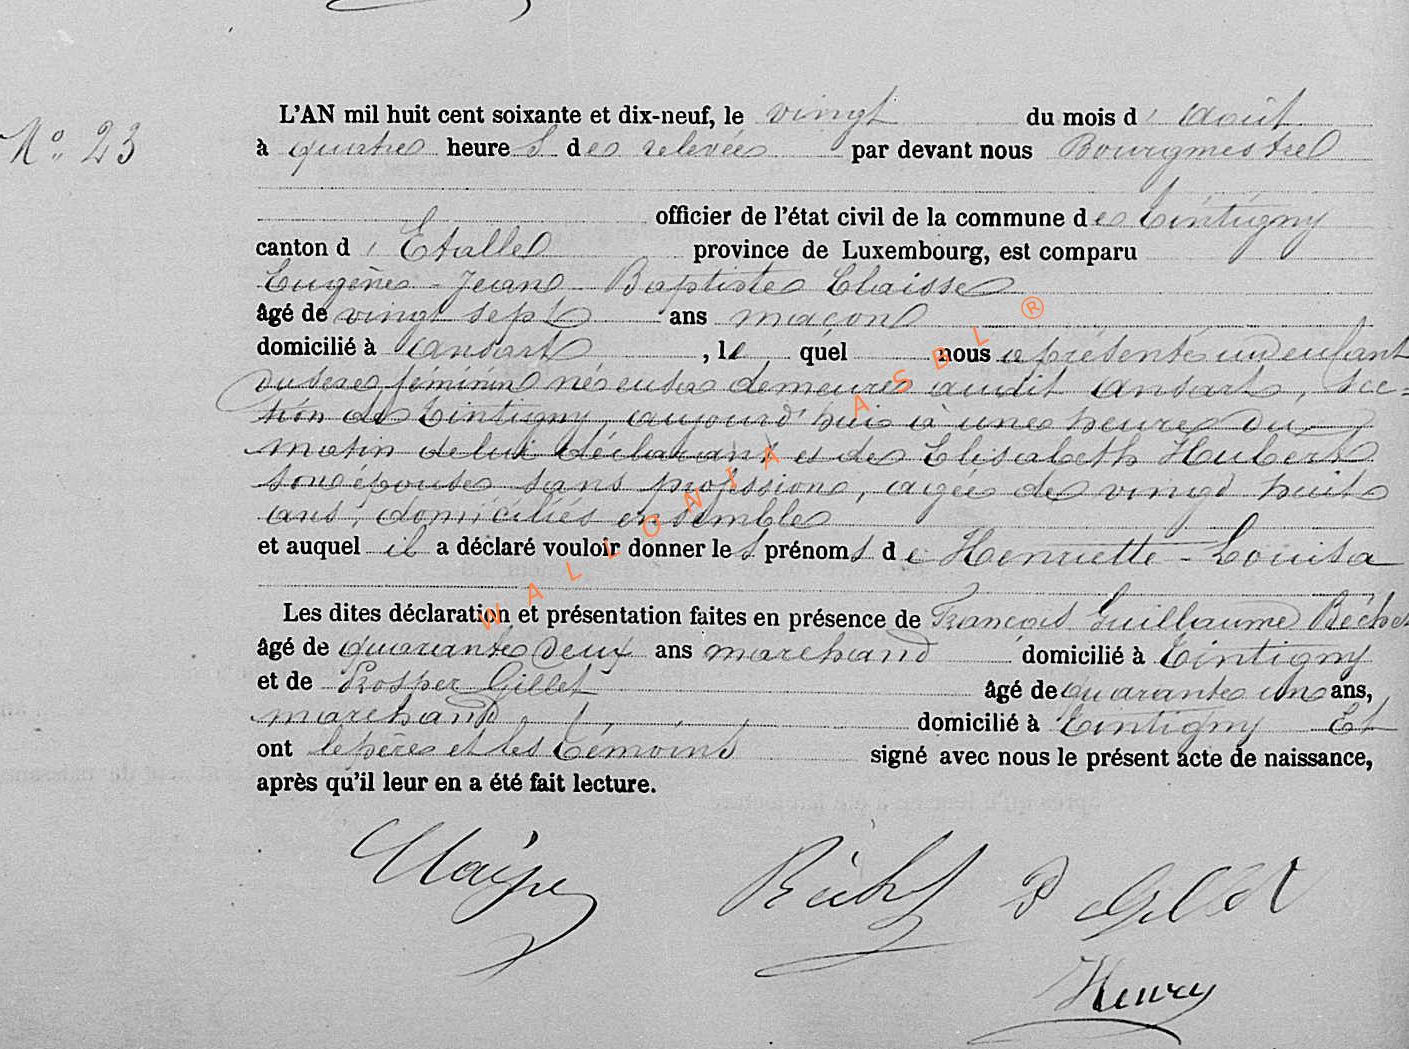 L'AN mil huit cent soixante et dix-neuf, le vingt du mois d' août
N° 23
à quatre heures de relevée par devant nous Bourgmestre
officier de l'état civil de la commune de Tintigny
canton d' Etalle province de Luxembourg, est comparu
Eugène-Jean Baptiste Claisse
âgé de vingt sept ans maçon
domicilié à Ansart, lequel nous a présenté un enfant
du sexe féminin né en sa demeure audit Ansart, sec=
tion de Tintigny, aujourd'hui à une heure du
matin de lui déclarant et de Elisabeth Hubert
son épouse sans profession, agée de vingt huit
ans, domiciliés ensemble
et auquel il a déclaré vouloir donner les prénoms de Henriette-Louisa
Les dites déclaration et présentation faites en présence de François Guillaume Béchet
âgé de quarante deux ans marchand domicilié à Tintigny
et de Prosper Gillet âgé de quarante un ans,
marchand, domicilié à Tintigny Et
ont le père et les témoins signé avec nous le présent acte de naissance,
après qu'il leur en a été fait lecture.
Claisse Béchet P Gillet
Henry
WALLONIA ASBL ®